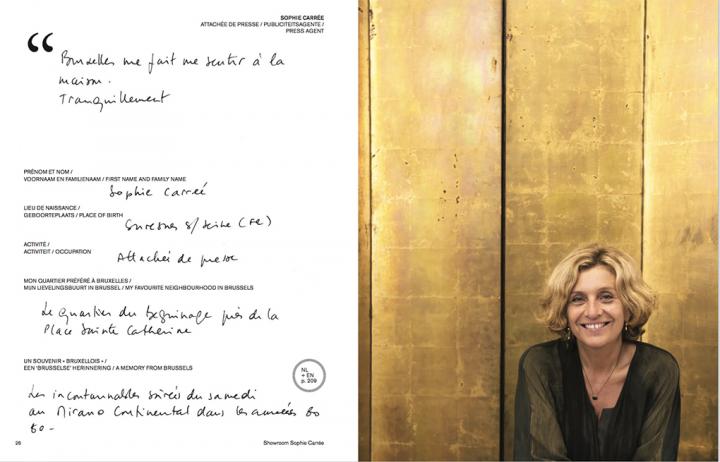 SOPHIE CARRÉE
ATTACHÉE DE PRESSE / PUBLICITEITSAGENTE /
PRESS AGENT
“
Bruxelles me fait me sentir à la
maison.
Tranquillement
PRÉNOM ET NOM /
VOORNAAM EN FAMILIENAAM / FIRST NAME AND FAMILY NAME
Sophie Carrée
LIEU DE NAISSANCE /
GEBOORTEPLAATS / PLACE OF BIRTH
Suresnes s/ Seine
ACTIVITÉ /
ACTIVITEIT / OCCUPATION
Attachée de presse
MON QUARTIER PRÉFÉRÉ À BRUXELLES /
MIJN LIEVELINGSBUURT IN BRUSSEL / MY FAVOURITE NEIGHBOURHOOD IN BRUSSELS
Le quartier du béguinage près de la
Place Sainte Catherine
UN SOUVENIR « BRUXELLOIS » /
EEN 'BRUSSELSE' HERINNERING / A MEMORY FROM BRUSSELS
NL
+ EN
p. 209
Les incontournables soirées du samedi
au Mirano Continental dans les années 80
26
Showroom Sophie Carrée